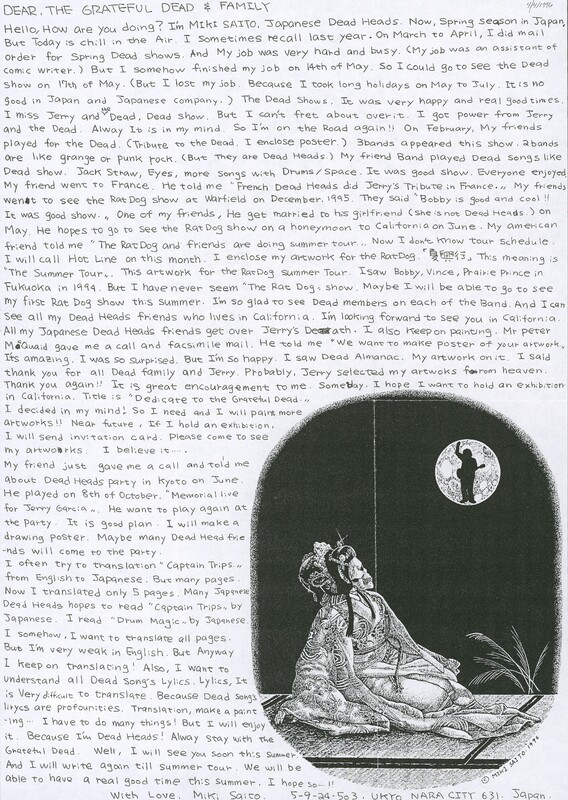 DEAR, THE GRATEFUL DEAD & FAMILY
4/4/1996
Hello, How are you doing? I'm MIKI SAITO, Japanese Dead Heads. Now, Spring season in Japan,
But Today is chill in the Air. I sometimes recall last year. On March to April, I did mail
order for Spring Dead shows. And My job was very hard and busy. (My job was an assistant of
comic writer.) But I somehow finished my job on 14th of May. So I could go to see the Dead
show on 17th of May. (But I lost my job. Because I took long holidays on May to July. It is no
good in Japan and Japanese company.) The Dead Shows. It was very happy and real good times.
I miss Jerry and the Dead, Dead show. But I can't fret about over it. I got power from Jerry
and the Dead. Alway It is in my mind. So I'm on the Road again!! On February, My friends
played for the Dead. (Tribute to the Dead. I enclose poster.) 3bands appeared this show. 2bands
are like grange or punk rock. (But They are Dead Heads.) My friend Band played Dead songs like
Dead show. Jack Straw, Eyes, more Songs with Drums/Space. It was good show. Everyone enjoyed
My friend went to France. He told me "French Dead Heads did Jerry's Tribute in France.„ My friends
went to see the Rat Dog show at Warfield on December. 1995. They said "Bobby is good and cool!!
It was good show.„ One of my friends, He get married to his girlfriend (She is not Dead Heads.) on
May. He hopes to go to see the Rat Dog show on a honeymoon to California on June. My american
friend told me "The Rat Dog and friends are doing summer tour.„ Now I don't know tour schedule.
I will call Hot Line on this month. I enclose my artwork for the Rat Dog. 「夏興行」 This meaning is
"The Summer Tour„. This artwork for the Rat Dog Summer Tour. I saw Bobby, Vince, Prairie Prince in
Fukuoka in 1994. But I have never seem "The Rat Dog„ show. Maybe I will be able to go to see
my first Rat Dog show this Summer. I'm so glad to see Dead members on each of the Band. And I can
See all my Dead Heads friends who lives in California. I'm looking forward to see you in California.
All my Japanese Dead Heads friends get over Jerry's Death. I also keep on painting. Mr peter
McQuaid gave me a call and facsimile mail. He told me "We want to make poster of your artwork„
Its amazing. I was so surprised. But I'm so happy. I saw Dead Almanac. My artwork on it. I said
thank you for all Dead family and Jerry. Probably, Jerry selected my artwoks from heaven.
Thank you again!! It is great encouragement to me. Someday. I hope I want to hold an exhibition
in California. Title is "Dedicate to the Grateful Dead.„
I decided in my mind! So I need and I will paint more
artworks!! Near future, If I hold an exhibition,
I will send invitation card. Please come to see
my artwoks. I believe it.....
My friend just gave me a call and told me
about Dead Heads party in Kyoto on June.
He played on 8th of October. "Memorial live
for Jerry Garcia„. He want to play again at
the Party. It is good plan. I will make a
drawing poster. Maybe many Dead Head frie
-nds will come to the party.
I often try to translation "Captain Trips„
from English to Japanese. But many pages.
Now I translated only 5 pages. Many Japanese
Dead Heads hopes to read "Captain Trips„ by
Japanese. I read "Drum Magic„ by Japanese.
I somehow, I want to translate all pages.
But I'm very weak in English. But Anyway
I keep on translating! Also, I want to
understand all Dead Song's Lylics. Lylics, It
is Very difficult to translate. Because Dead Song's
lirycs are profounities. Translation, make a paint
-ing... I have to do many things! But I will enjoy
it. Because I'm Dead Heads! Alway Stay with the
Grateful Dead. Well, I will see you soon this Summer
And I will write again till summer tour. We will be
able to have a real good time this summer. I hope so--!!
With Love. Miki Saito. 5-9-24-503. UKYO NARA CITY 631. Japan.
© MIKI SAITO. 1996